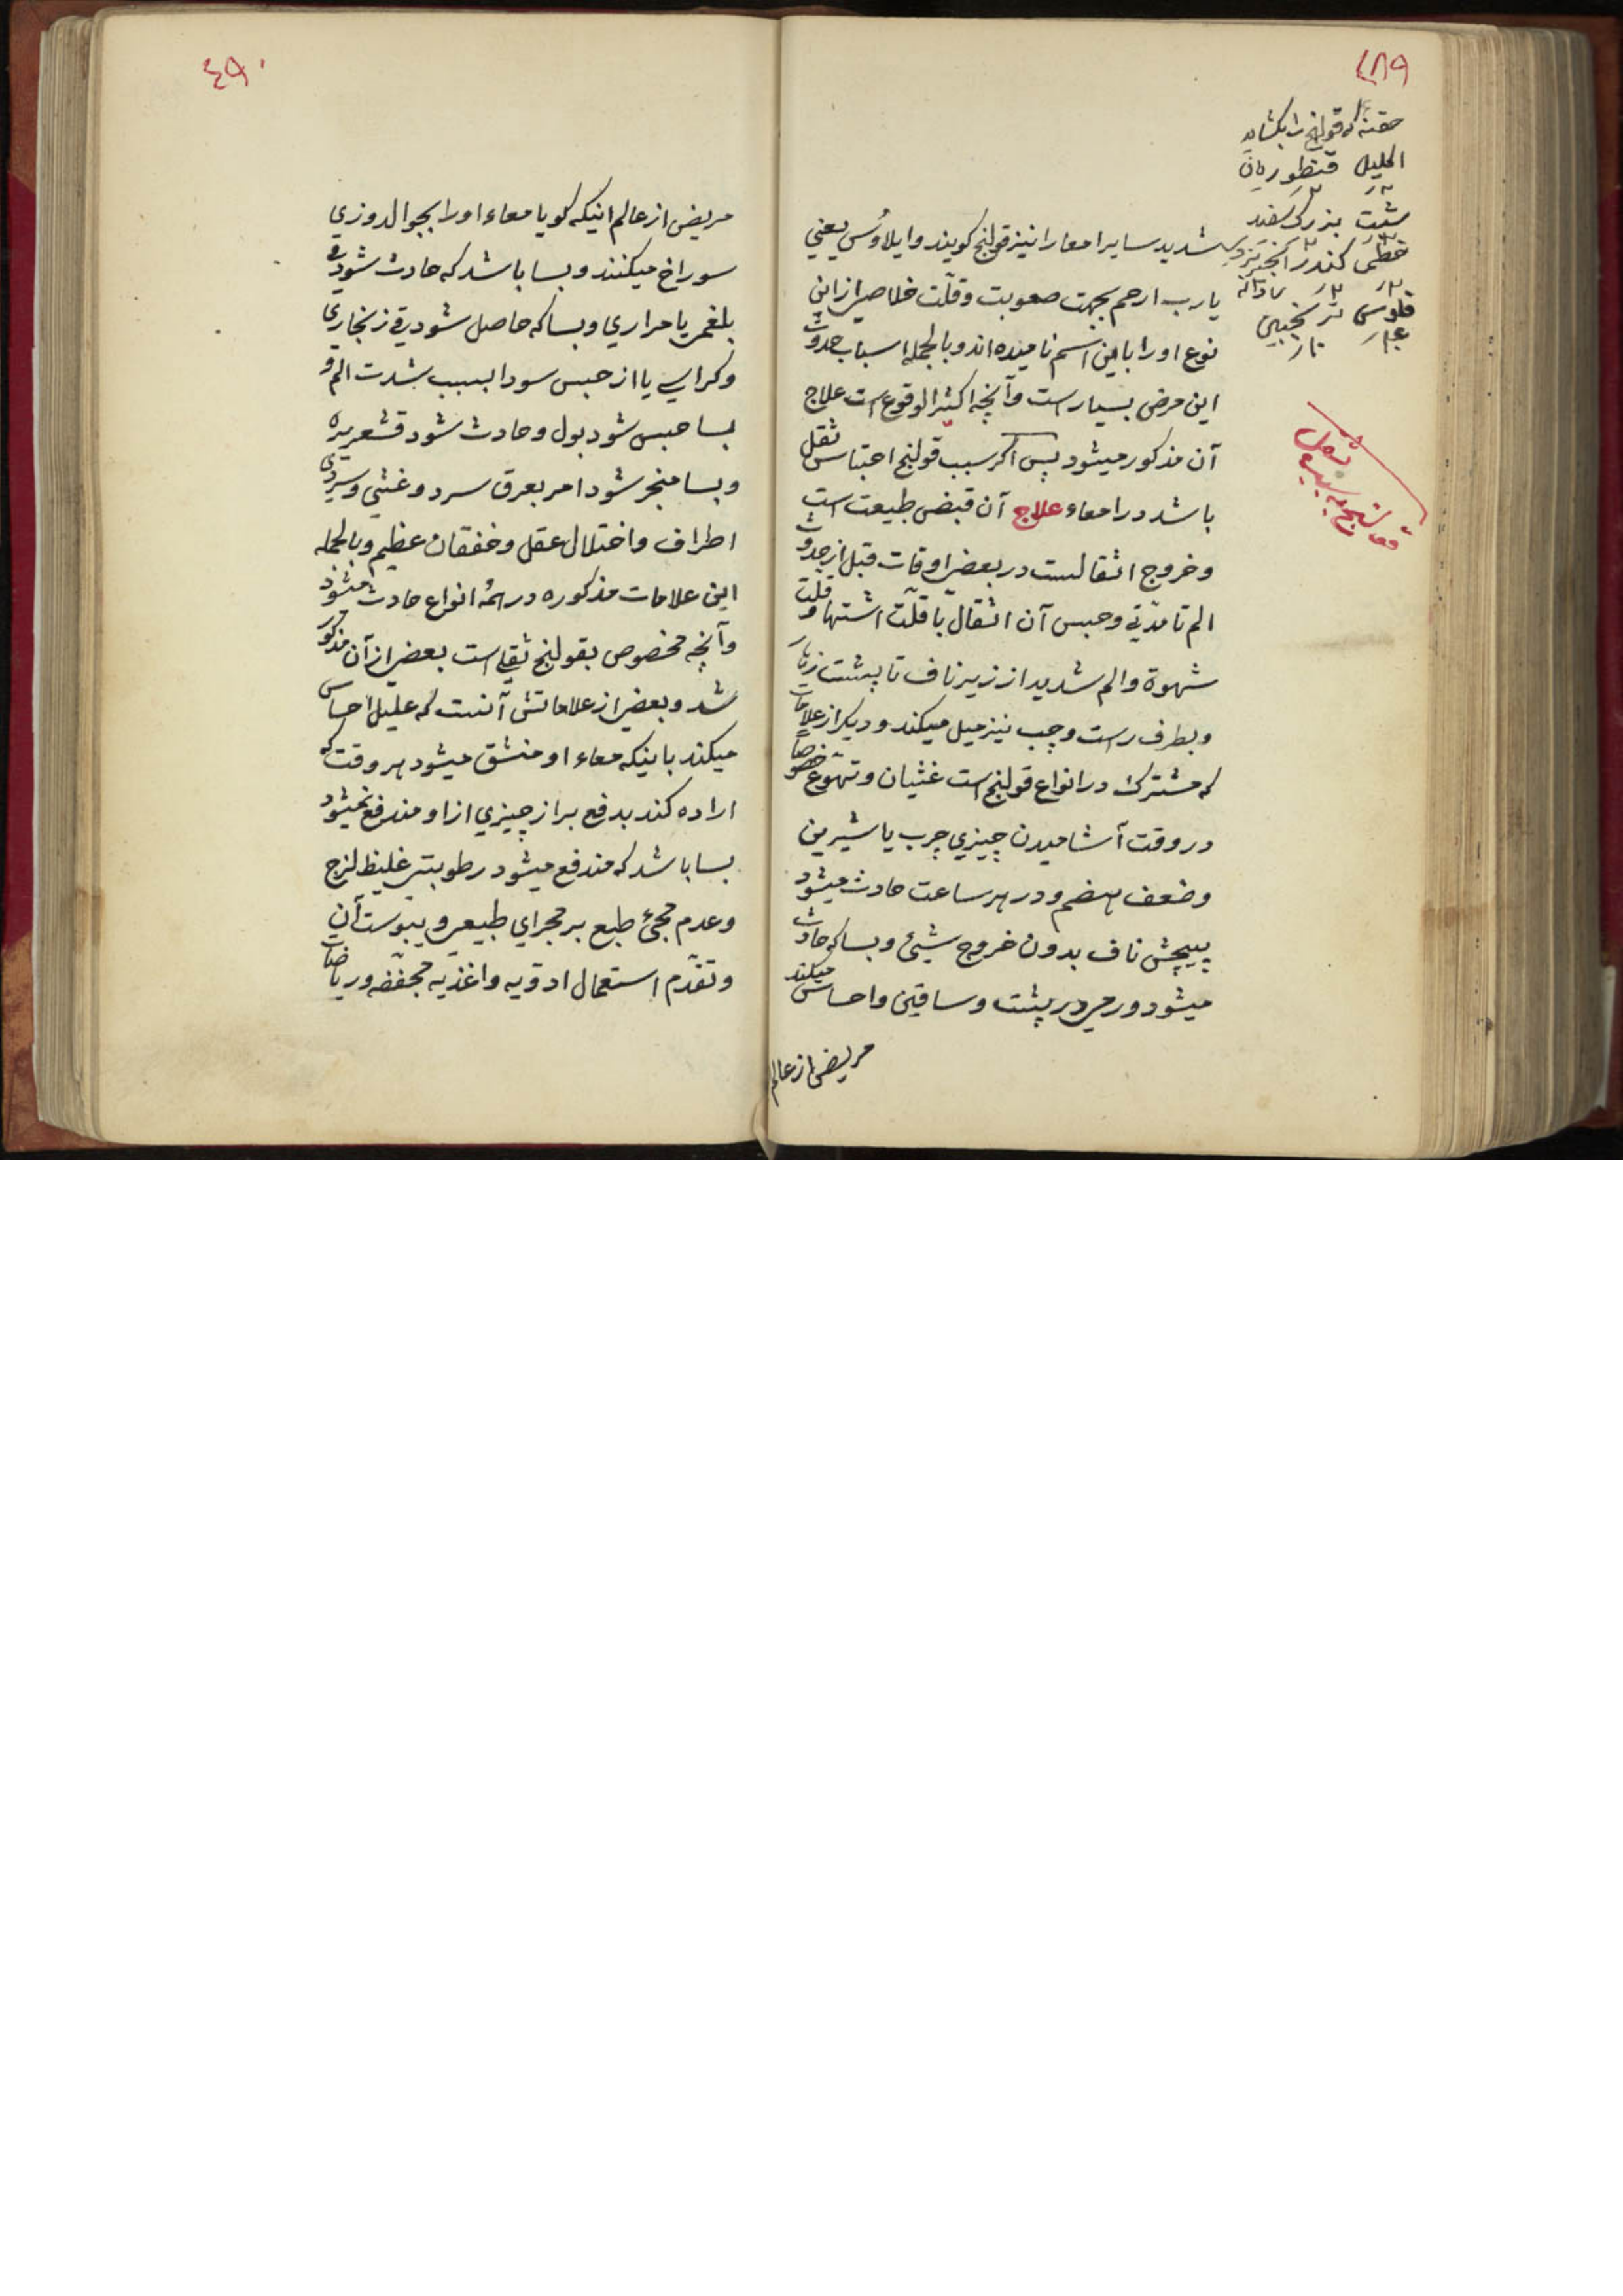 ۴۸۹
حقنهٔ که قولنج را بکشاید
اکلیل قنطوریان
شبت بزرک سفید
خطمی کندر انجیر زرد
فلوس ترنجبین
شدید سایر امعا را نیز قولنج کویند و ایلاوُس یعني
یا رب ارحم بجهت صعوبت و قلّت خلاصي از این
نوع او را باین اسم نامیده اند و بالجمله اسباب حدوث
این مرض بسیار است و آنچه اکثر الوقوع است علاج
آن مذکور میشود پس اکر سبب قولنج احتباس ثقل
باشد در امعاء علاج آن قبض طبیعت است
و خروج اثقالست در بعض اوقات قبل از حدوث
الم تا مدّتي و حبس آن اثقال با قلّت اشتها و قلت
شهوة و الم شدید از زیر ناف تا پشت زهار
و بطرف راست و چپ نیز میل میکند و دیکر از علامات
که مشترک در انواع قولنج است غثیان و تهوّع خصوصاً
در وقت آشامیدن چیزي چرب یا شیرین
و ضعف هضم و در هر ساعت حادث میشود
پیچش ناف بدون خروج شیئ و بسا که حادث
میشود ورمي در پشت و ساقین و احساس میکند
مریض از عالم
۴۹۰
مریض از عالم اینکه کویا معاء او را بجوالدوزي
سوراخ میکنند و بسا باشد که حادث شود قي
بلغمي یا مراري و بسا که حاصل شود قي زنجاري
و کراثي یا از جنس سودا بسبب شدت الم و
بسا حبس شود بول و حادث شود قشعریره
و بسا منجر شود امر بعرق سرد و غشي و سردي
اطراف و اختلال عقل و خفقان عظیم و بالجمله
این علامات مذکوره در همهٔ انواع حادث میشود
و آنچه مخصوص بقولنج ثقلي است بعضي از آن مذکور
شد و بعضي از علاماتش آنست که علیل احساس
میکند باینکه معاء او منشق میشود هر وقت که
اراده کند بدفع براز چیزي از او مندفع نمیشود
بسا باشد که مندفع میشود رطوبتي غلیظ لزج
و عدم مجئ طبع بر مجراي طبیعي و یبوست آن
و تقدّم استعمال ادویه و اغذیه مجففه و ریاضات